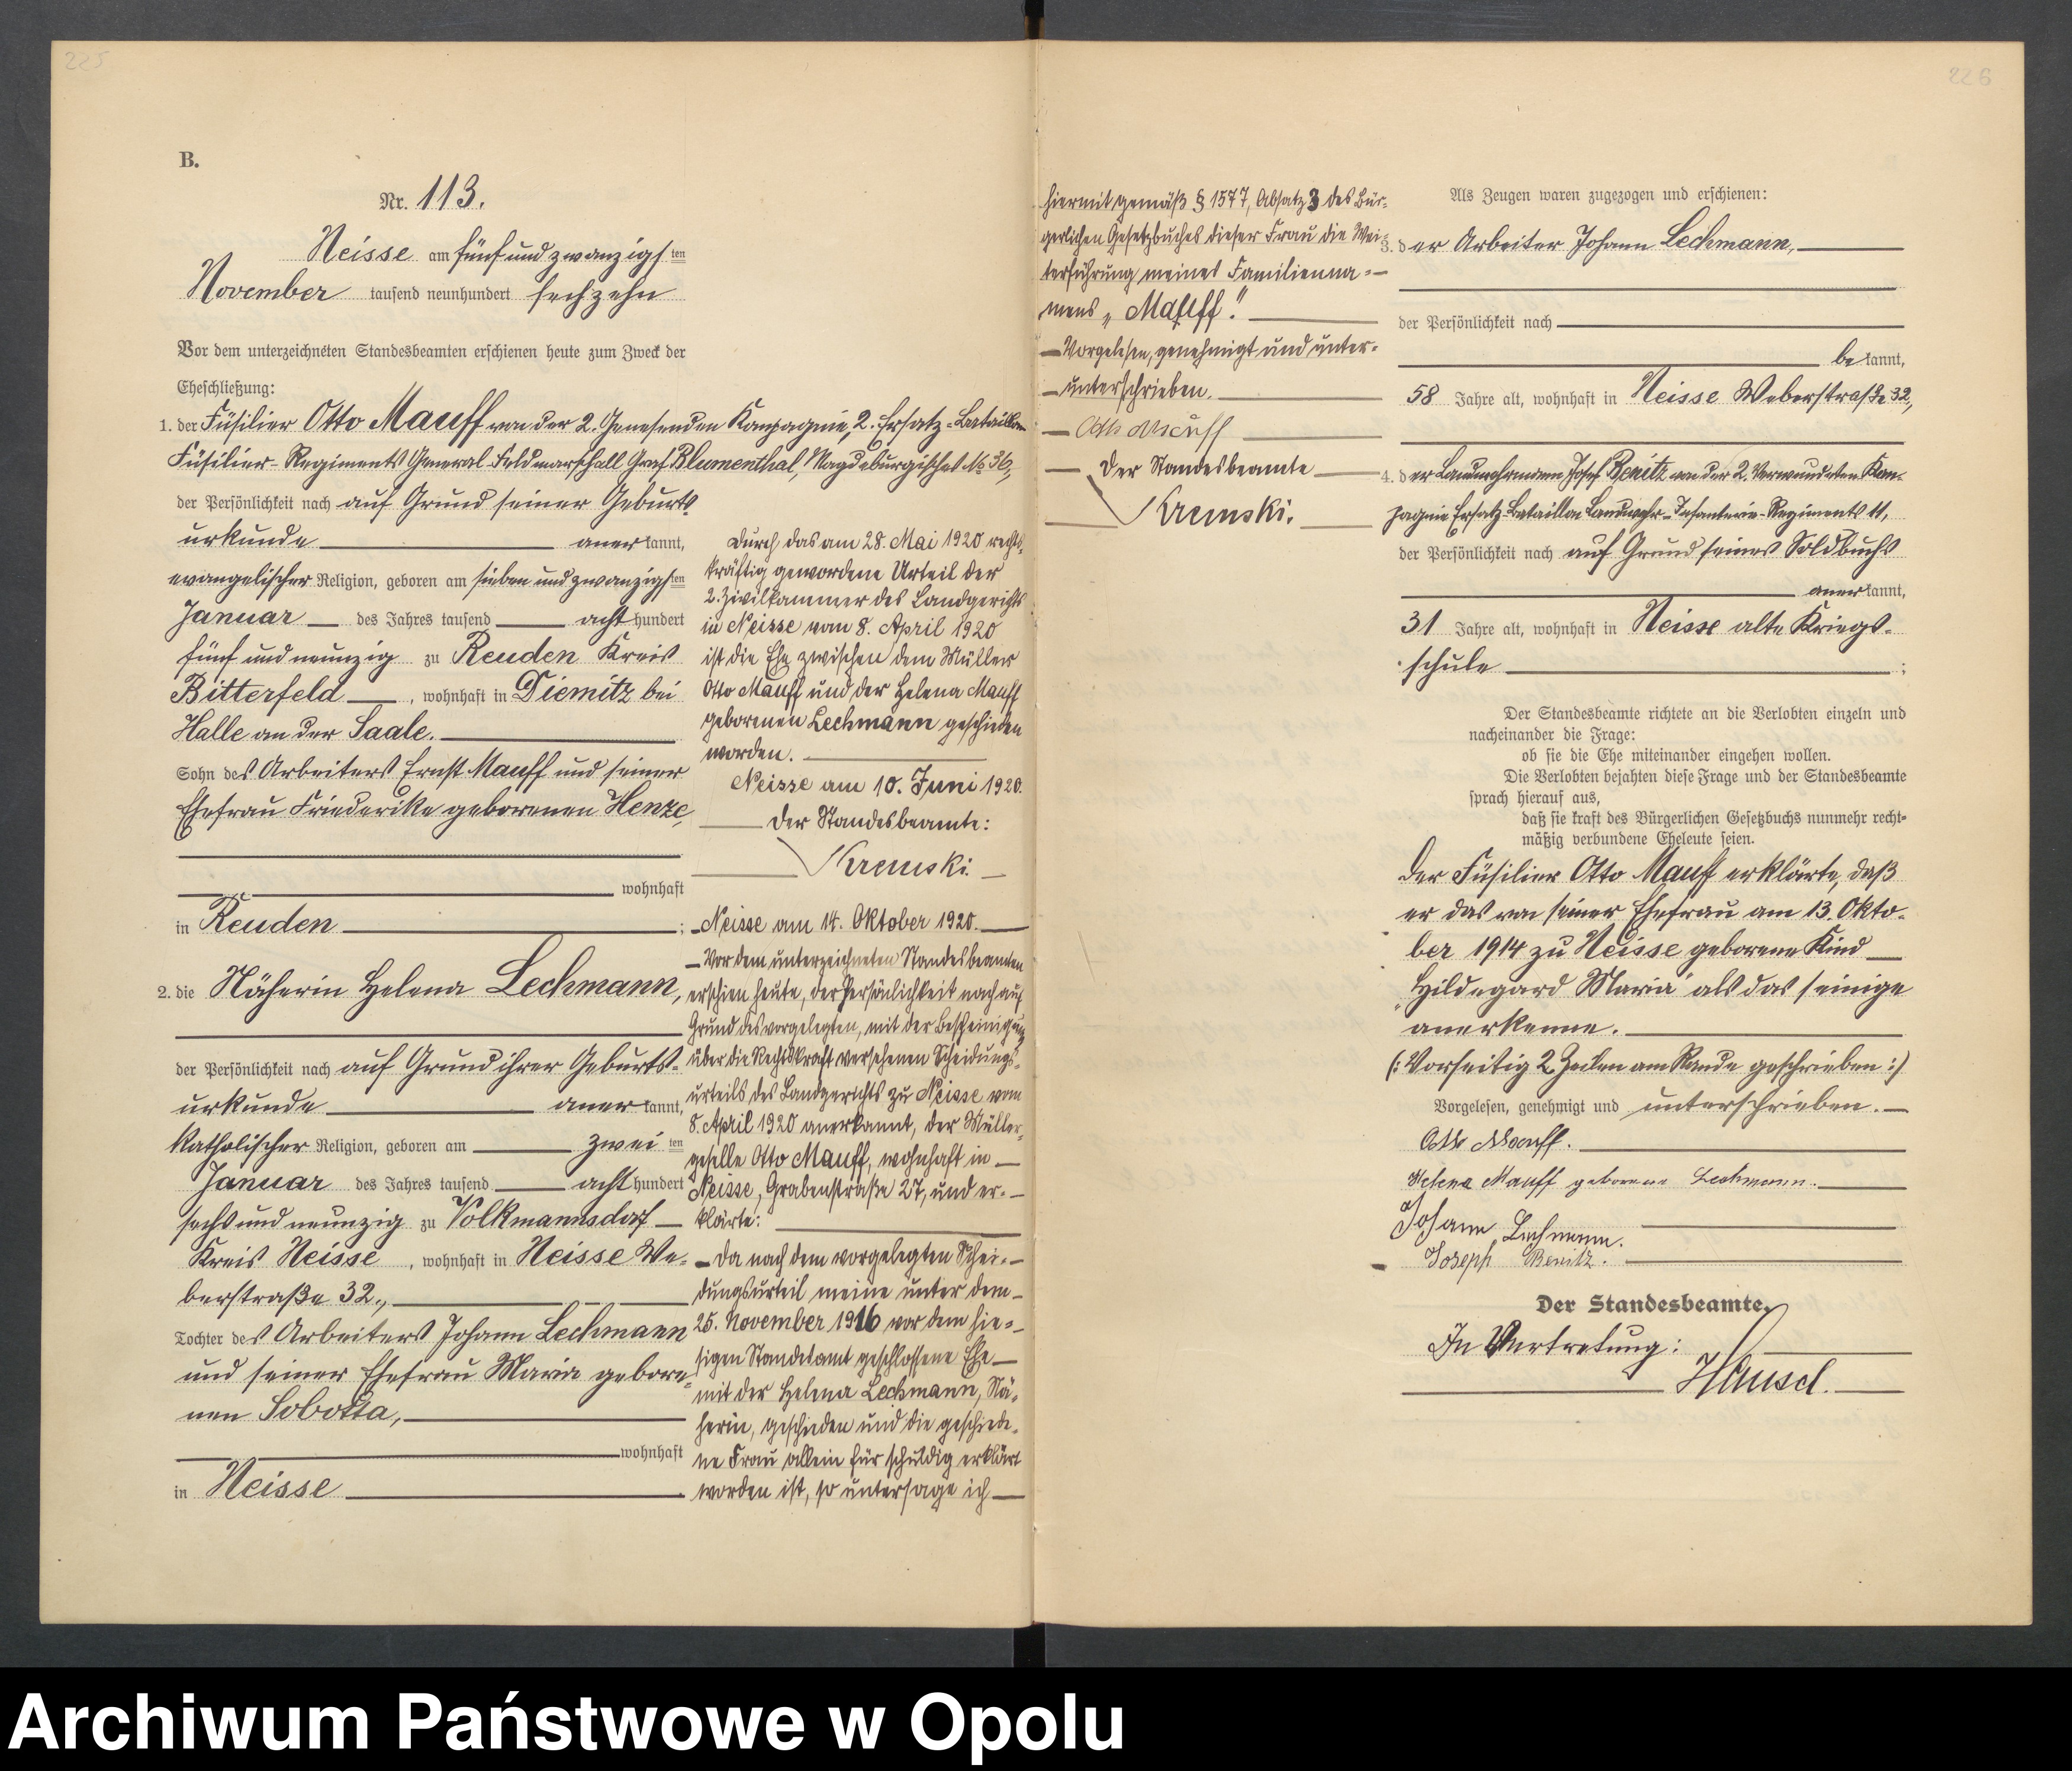 225
B.
Nr. 113.
Neisse am fünf und zwanzigsten
November tausend neunhundert sechzehn
Vor dem unterzeichneten Standesbeamten erschienen heute zum Zweck der
Eheschließung:
1. der Füsilier Otto Mauff von der 2. Genesenden Kompagnie, 2. Ersatz-Bataillon
Füsilier-Regiments General-Feldmarschall Graf Blumenthal, Magdeburgisches No 36,
der Persönlichkeit nach auf Grund seiner Geburts-
urkunde anerkannt,
evangelischer Religion, geboren am sieben und zwanzigsten
Januar des Jahres tausend achthundert
fünf und neunzig zu Reuden Kreis
Bitterfeld, wohnhaft in Diemitz bei
Halle an der Saale.
Sohn des Arbeiters Ernst Mauff und seiner
Ehefrau Friederike geborenen Henze,
wohnhaft
in Reuden;
2. die Näherin Helena Lechmann,
der Persönlichkeit nach auf Grund ihrer Geburts-
urkunde anerkannt,
katholischer Religion, geboren am zweiten
Januar des Jahres tausend achthundert
sechs und neunzig zu Volkmannsdorf
Kreis Neisse, wohnhaft in Neisse We-
berstraße 32.,
Tochter des Arbeiters Johann Lechmann
und seiner Ehefrau Maria gebore-
nen Sobotta,
wohnhaft
in Neisse
Durch das am 28. Mai 1920 rechts-
kräftig gewordene Urteil der
2. Zivilkammer des Landgerichts
in Neisse vom 8. April 1920
ist die Ehe zwischen dem Müller
Otto Mauff und der Helena Mauff
geborenen Lechmann geschieden
worden.
Neisse am 10. Juni 1920.
Der Standesbeamte:
Kremski
Neisse am 14. Oktober 1920.
Vor dem unterzeichneten Standesbeamten
erschien heute, der Persönlichkeit nach auf
Grund des vorgelegten, mit der Bescheinigung
über die Rechtskraft versehenen Scheidungs-
urteils des Landgerichts zu Neisse vom
8. April 1920 anerkannt, der Müller-
geselle Otto Mauff, wohnhaft in
Neisse, Grabenstraße 27, und er-
klärte:
Da nach dem vorgelegten Schei-
dungsurteil meine unter dem
25. November 1916 vor dem hie-
sigen Standesamt geschlossene Ehe
mit der Helena Lechmann, Nä-
herin, geschieden und die geschiede-
ne Frau allein für schuldig erklärt
worden ist, so untersage ich
226
hiermit gemäß § 1577, Absatz 3 des Bür-
gerlichen Gesetzbuches dieser Frau die Wei-
terführung meines Familienna-
mens „Mauff."
Vorgelesen, genehmigt und unter-
unterschrieben.
Otto Mauff
Der Standesbeamte
Kremski.
Als Zeugen waren zugezogen und erschienen:
3. der Arbeiter Johann Lechmann,
der Persönlichkeit nach
bekannt,
58 Jahre alt, wohnhaft in Neisse Weberstraße 32.,
4. der Landwehrmann Josef Benitz von der 2. Verwundeten Kom-
pagnie Ersatz-Bataillon Landwehr-Infanterie-Regiments 11,
der Persönlichkeit nach auf Grund seines Soldbuchs
anerkannt,
31 Jahre alt, wohnhaft in Neisse alte Kriegs-
schule;
Der Standesbeamte richtete an die Verlobten einzeln und
nacheinander die Frage:
ob sie die Ehe miteinander eingehen wollen.
Die Verlobten bejahten diese Frage und der Standesbeamte
sprach hierauf aus,
daß sie kraft des Bürgerlichen Gesetzbuchs nunmehr recht-
mäßig verbundene Eheleute seien.
Der Füsilier Otto Mauff erklärte, daß
er das von seiner Ehefrau am 13. Okto-
ber 1914 zu Neisse geborene Kind
„Hildegard Maria" als das seinige
anerkenne.
(: Vorseitig 2 Zeilen am Rande geschrieben :)
Vorgelesen, genehmigt und unterschrieben.
Otto Mauff.
Helena Mauff geborene Lechmann.
Johann Lechmann.
Joseph Benitz.
Der Standesbeamte.
In Vertretung:
Hansel.
Archiwum Państwowe w Opolu